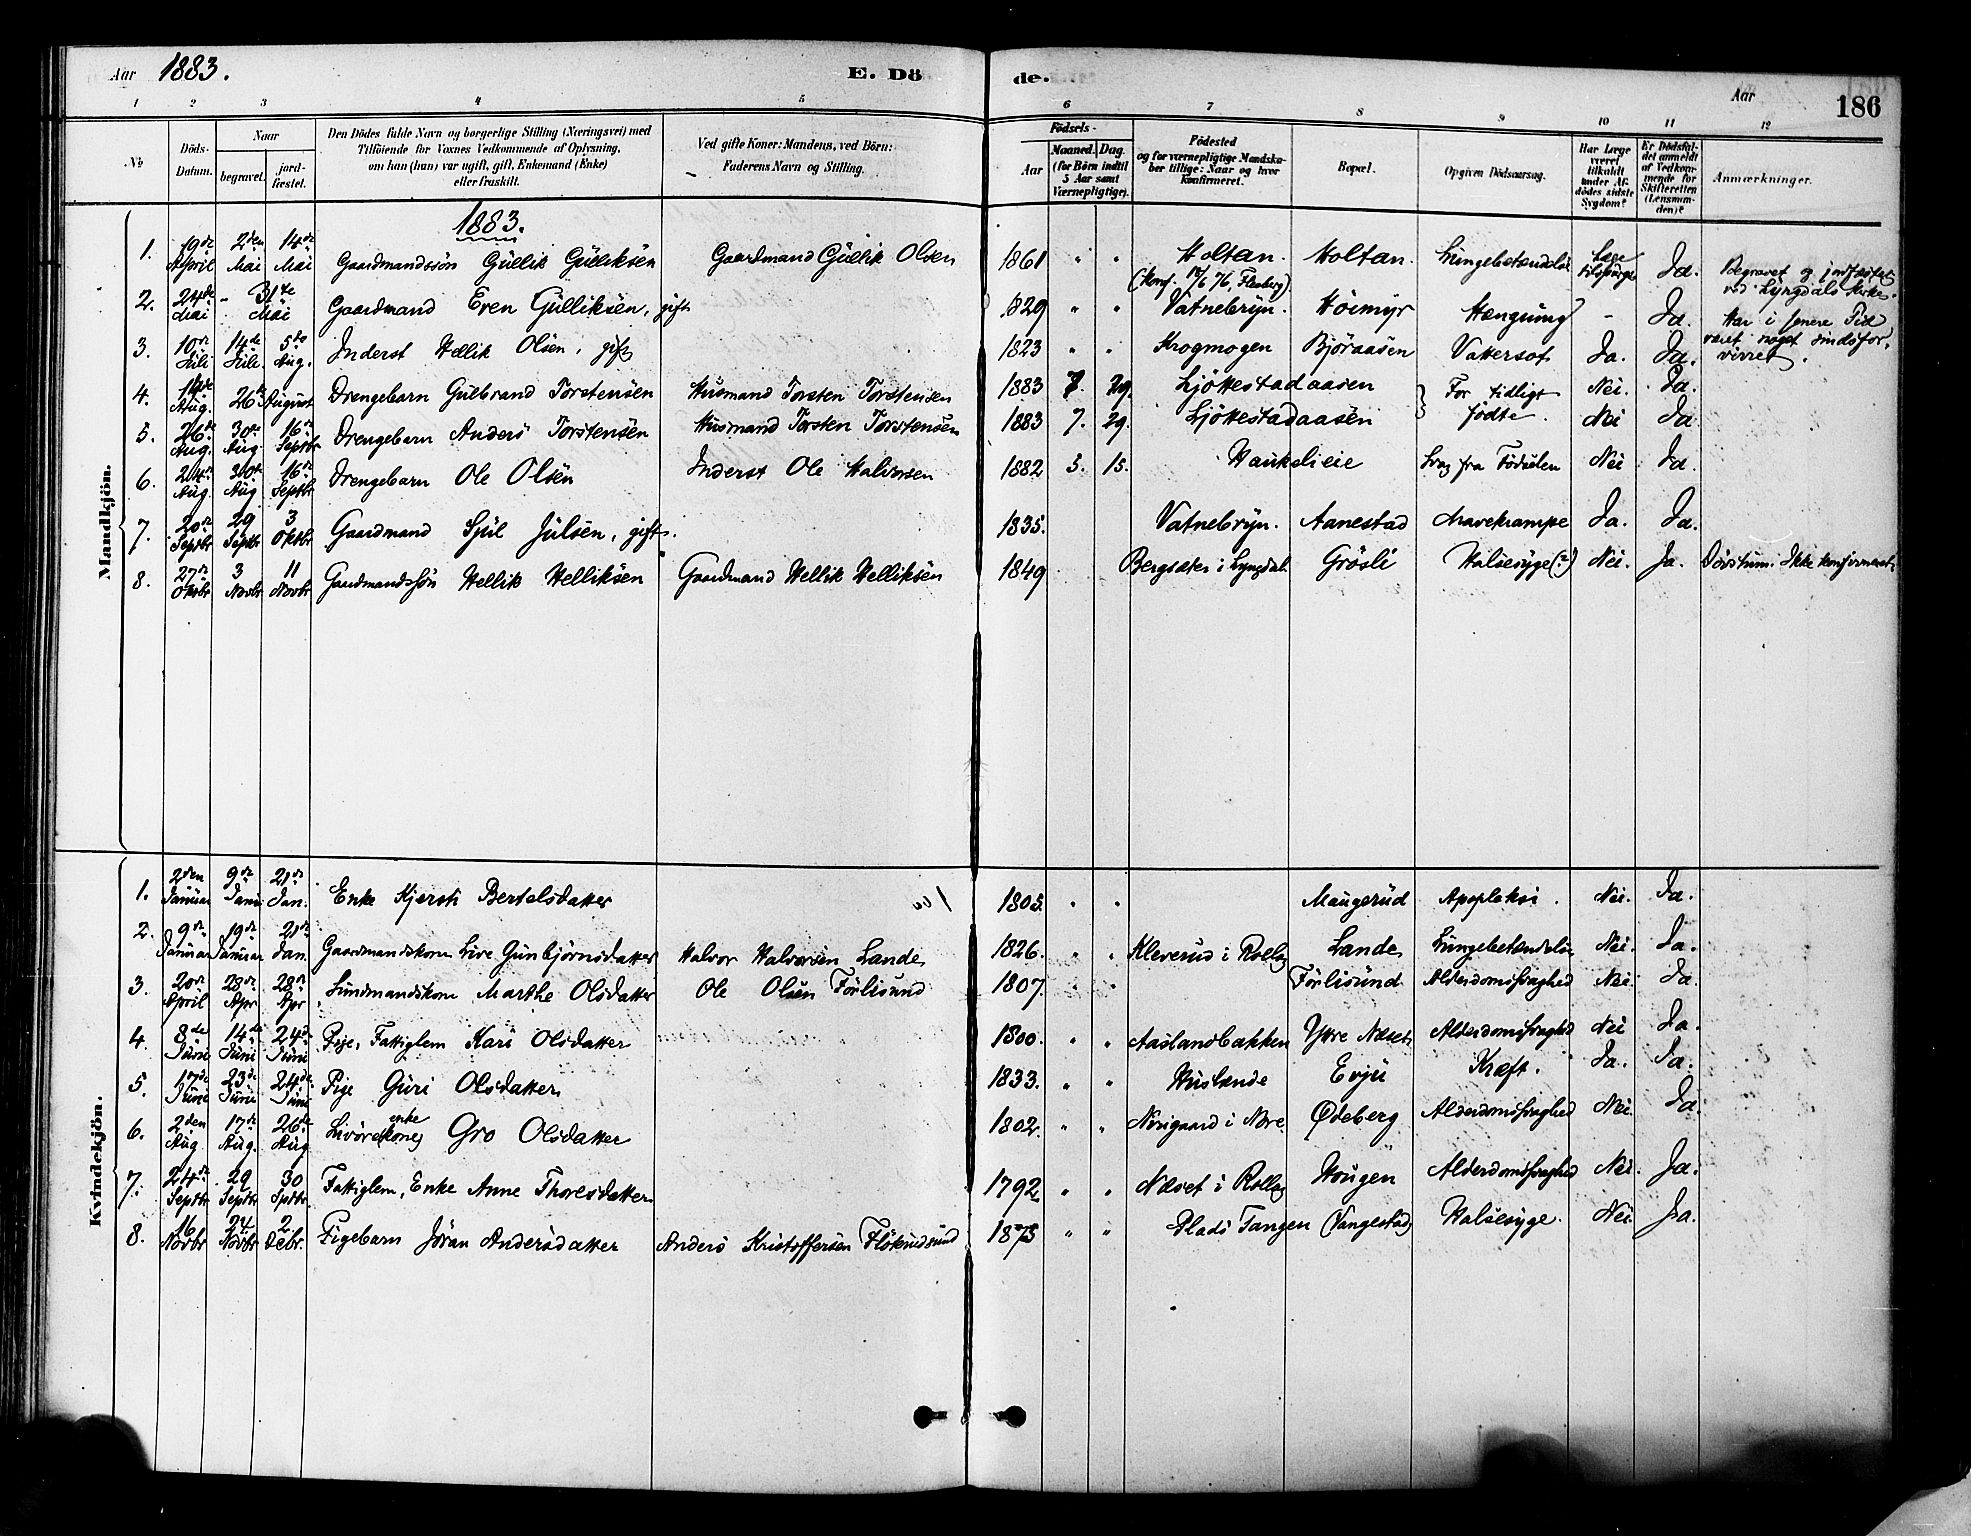 Aar 1883. E. Dö de. Aar 186
1 2 3 4 5 6 7 8 9 10 11 12
№ Döds-Datum. Naar begravet. jord-fæstet. Den Dödes fulde Navn og borgerlige Stilling (Næringsvei) med Tilföiende for Voxnes Vedkommende af Oplysning, om han (hun) var ugift, gift, Enkemand (Enke) eller fraskilt. Ved gifte Koner: Mandens, ved Börn: Faderens Navn og Stilling. Födsels- Aar Maaned. Dag. (for Börn indtil 5 Aar samt Værnepligtige). Födested og for værnepligtige Mandska-ber tillige: Naar og hvor Konfirmeret. Bopæl. Opgiven Dödsaarsag. Har Læge været tilkaldt under Af-dödes sidste Sygdom? Er Dödsfal-det anmeldt af Vedkom-mende for Skifteretten (Lensman-den)? Anmærkninger.
Mandkjön.
1883.
1. 19de April 2den Mai 14de Mai Gaardmandssön Gullik Gulliksen Gaardmand Gullik Olsen 1861 " " Holtan. (Konf. 76, Flesberg) Holtan. Lungebetændelse Læge Ja. Begravet og jordfæstet ved Lyngdals Kirke.
2. 24de Mai - 31te Mai Gaardmand Even Gulliksen, gift 1829 " " Vatnebryn. Höimyr Hængning - Ja. Har i senere Tid været noget sindsfor-virret.
3. 10de Juli 14de Juli 5te Aug. Inderst Hellik Olsen, gift 1823 " " Krogmogen Björaasen Vattersot Ja. Ja.
4. 14de Aug. 26de August Drengebarn Gulbrand Torstensen Husmand Torsten Torstensen 1883 7. 29. Ljökestadaasen For tidligt Nei. Ja.
5. 26de Aug. 30te Aug. 16de Septbr Drengebarn Anders Torstensen Husmand Torsten Torstensen 1883 7. 29. Ljökestadaasen födte. Nei Ja
6. 24de Aug. 30te Aug 16de Septbr Drengebarn Ole Olsen Inderst Ole Halvorsen 1882 5. 15. Haukelieie Svag fra Födselen Nei Ja.
7. 20de Septbr 29 Septbr 3 Oktbr Gaardmand Sjul Julsen, gift. 1835. Vatnebryn. Aanestad Mavekrampe Ja. Ja.
8. 27de Oktbr 3 Novbr 11 Novbr Gaardmandssön Hellik Helliksen Gaardmand Hellik Helliksen 1849 Bergsæter i Lyngdal. Grösli Halsesyge (?) Nei. Ja. Dövstum. Ikke konfirmeret.
Kvindekjön.
1. 2den Januar 9de Janu 21de Jan. Enke Kjersti Bertelsdatter 1805. " " Maugerud Apopleksi. Nei. Ja.
2. 9de Januar 19de Januar 21de Jan. Gaardmandskone Live Gunbjörnsdatter Halvor Halvorsen Lande 1826. " " Kleverud i Rollag Lande Lungebetændelse Nei. Ja.
3. 20de April 28de Apr 28de Apr Marthe Olsdatter Ole Olsen Förlisund 1807. Förlisund Alderdomssvaghed Nei. Ja
4. 8de Juni 14de Juni 24de Juni Pige, Fattiglem Kari Olsdatter 1800. " " Aaslandbakken Ytre Næset Alderdomssvaghed Nei Ja.
5. 17de Juni 23de Juni 24de Juni Pige Guri Olsdatter 1833. " " Huslende Evju Kræft. Ja. Ja.
6. 2den Aug 17de Aug. 26de Aug Livöre(kone) enke Gro Olsdatter 1802. " " Norigaard i Nore Ødeberg Alderdomssvaghed Nei. Ja.
7. 24de Septbr 29 Septbr 30 Sptbr Fattiglem, Enke Anne Thoresdatter 1792 " " Næset i Rollag Hougen Alderdomssvaghed Nei. Ja.
8. 16 Novbr 24 Novbr 2 Decbr. Pigebarn Jöran Andersdatter Anders Kristoffersen Flöterudsund 1873 " " Plads Tangen (Vangestad) Halsesyge. Nei. Ja.